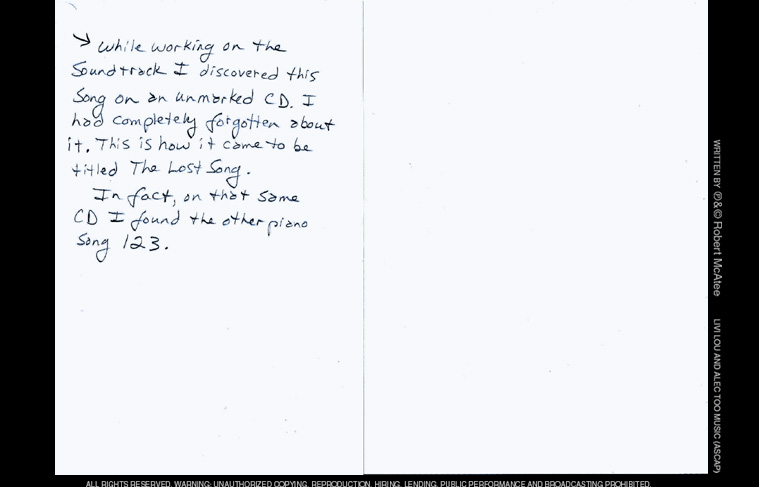 → While working on the
Soundtrack I discovered this
Song on an unmarked CD. I
had completely forgotten about
it. This is how it came to be
titled The Lost Song.
In fact, on that same
CD I found the other piano
Song 123.
WRITTEN BY ℗&© Robert McAtee
LIVI LOU AND ALEC TOO MUSIC (ASCAP)
ALL RIGHTS RESERVED. WARNING: UNAUTHORIZED COPYING, REPRODUCTION, HIRING, LENDING, PUBLIC PERFORMANCE AND BROADCASTING PROHIBITED.